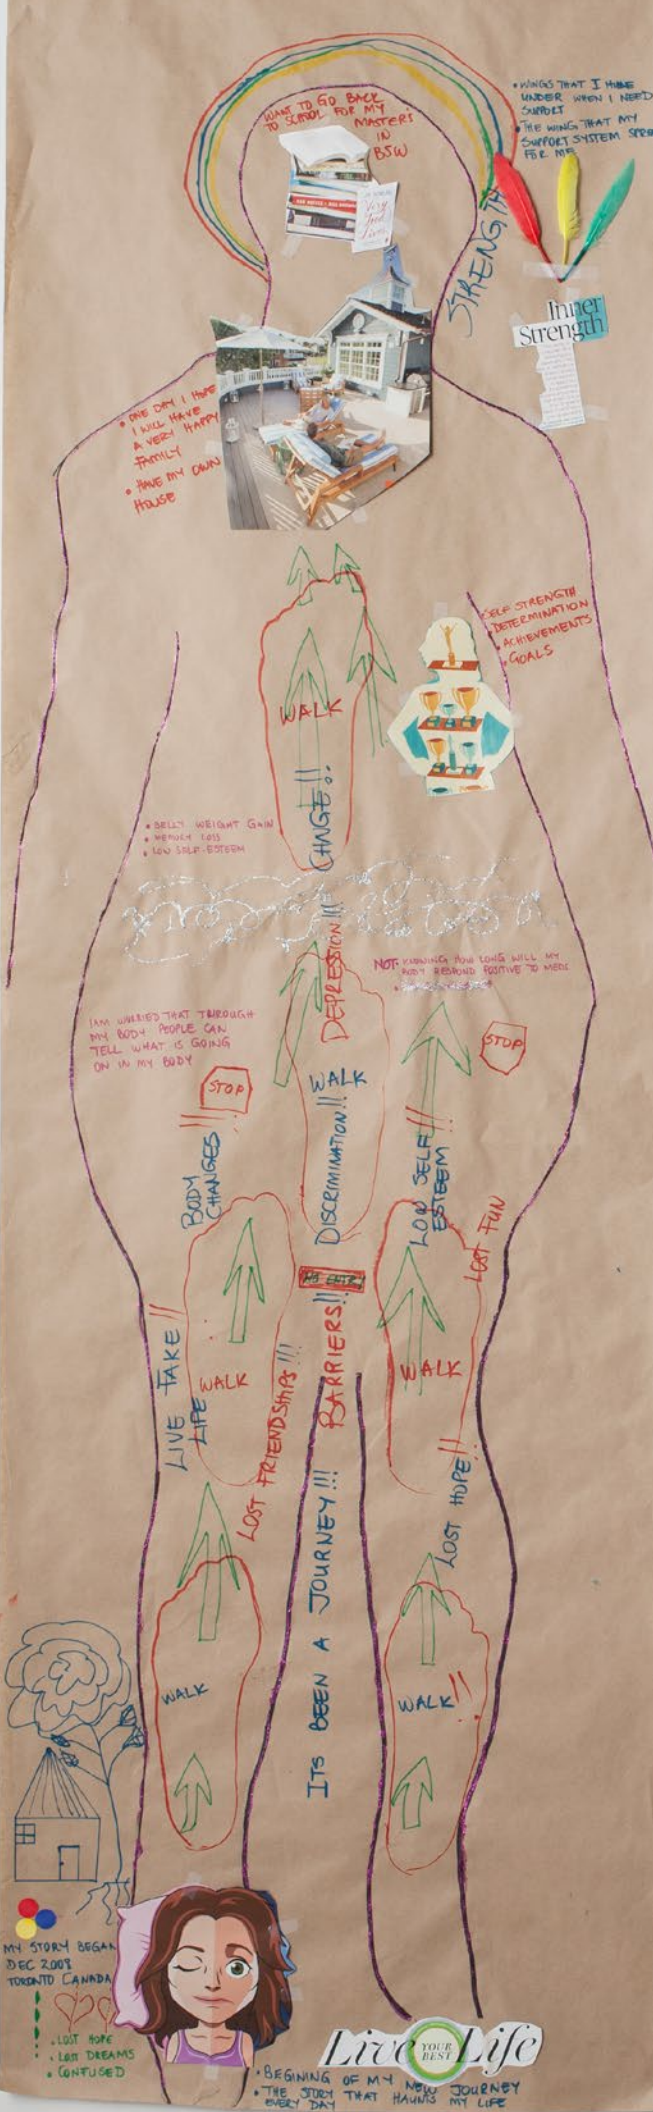 WANT TO GO BACK
TO SCHOOL FOR MY
MASTERS
IN
BSW
• WINGS THAT I HIDE
UNDER WHEN I NEED
SUPPORT
• THE WING THAT MY
SUPPORT SYSTEM
FOR ME
STRENGTH
Inner
Strength
• ONE DAY I HOPE
I WILL HAVE
A VERY HAPPY
FAMILY
• HAVE MY OWN
HOUSE
SELF STRENGTH
• DETERMINATION
• ACHIEVEMENTS
• GOALS
WALK
CHNGE!!
• BELLY WEIGHT GAIN
• MEMORY LOSS
• LOW SELF-ESTEEM
DEPRESSION!!!
NOT KNOWING HOW LONG WILL MY
BODY RESPOND POSITIVE TO MEDS
I AM WORRIED THAT THROUGH
MY BODY PEOPLE CAN
TELL WHAT IS GOING
ON IN MY BODY
STOP
STOP
WALK
DISCRIMINATION!!
BODY
CHANGES!!
LOW SELF!!
ESTEEM
LOST FUN
NO ENTRY
BARRIERS!!
LIVE FAKE!!
LIFE
WALK
WALK
LOST FRIENDSHIPS!!!
LOST HOPE!!
ITS BEEN A JOURNEY!!!
WALK
WALK!!
MY STORY BEGAN
DEC 2008
TORONTO CANADA
• LOST HOPE
• LOST DREAMS
• CONFUSED
Live YOUR BEST Life
• BEGINING OF MY NEW JOURNEY
• THE STORY THAT HAUNTS MY LIFE
EVERY DAY